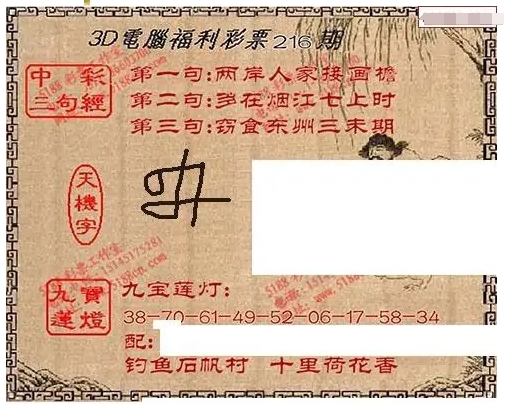 3D電腦福利彩票216期
中彩
三句經
第一句:两岸人家接画檐
第二句:岁在烟江七上时
第三句:窃食东州三未期
天機字
九寶
蓮燈
九宝莲灯:
38-70-61-49-52-06-17-58-34
配:
钓鱼石帆村 十里荷花香